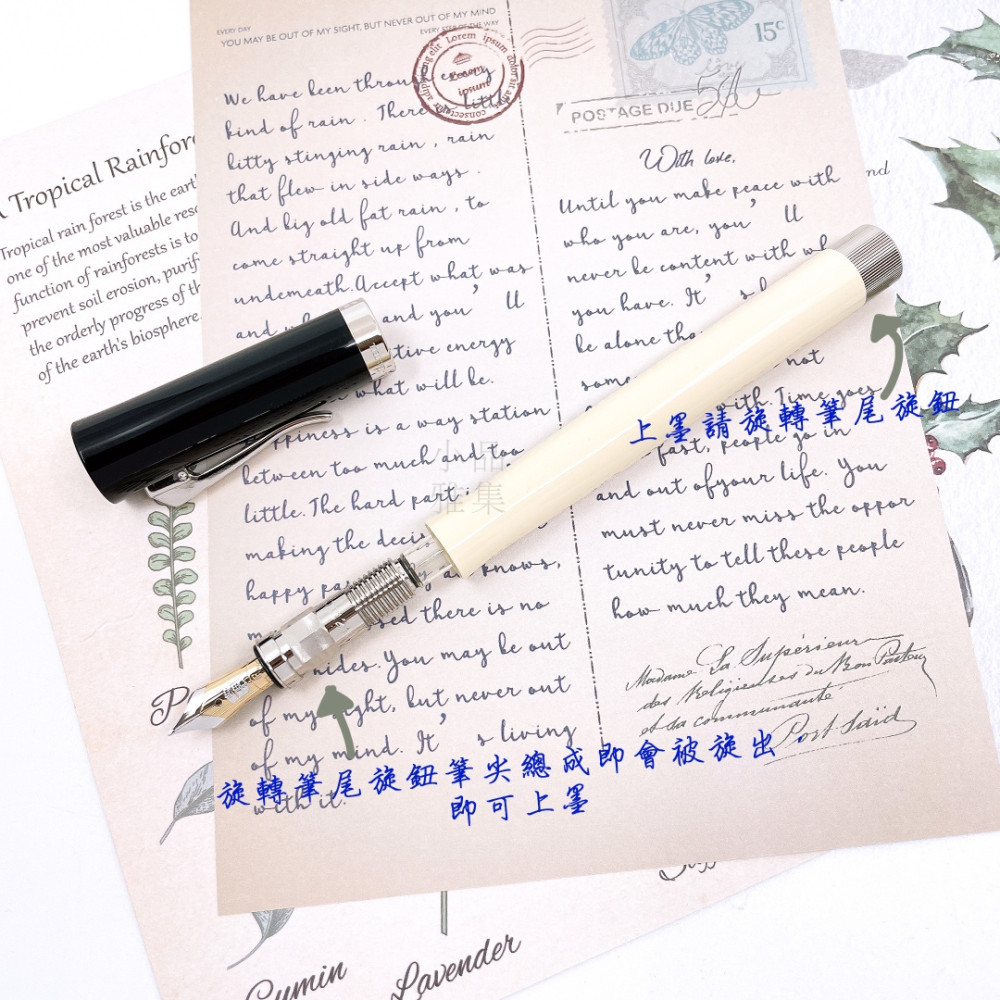 EVERY DAY
YOU MAY BE OUT OF MY SIGHT, BUT NEVER OUT OF MY MIND
EVERY STEP OF THE WAY
We have been through every
kind of rain . There little
bitty stinging rain , rain
that flew in side ways .
And big old fat rain , to
come straight up from
underneath.Accept what was
and you' ll
tive energy
what will be.
ppiness is a way station
between too much and too
little.The hard part
making the deci
happy pas knows,
sed there is no
nides. You may be out
of my ght, but never out
of my mind. It' s living
with it.
Lorem ipsum dolor sit
consectetur adipiscing elit
Lorem
ipsum
15¢
POSTAGE DUE
With love,
Until you make peace with
who you are, you' ll
never be content with wh
you have. It' s
be alone tha
some not
with. Time goes
fast, people go in
and out ofyour life. You
must never miss the oppor
tunity to tell these people
how much they mean.
Madame La Supérieur
des Religieuses du Bon Pasteur
et sa communauté
Port Saïd
A Tropical Rainfor
Tropical rain forest is the eart
one of the most valuable res
function of rainforests is to
prevent soil erosion, purif
the orderly progress of th
of the earth's biosphere.
and
小品
雅集
上墨請旋轉筆尾旋鈕
旋轉筆尾旋鈕筆尖總成即會被旋出
即可上墨
Cumin
Lavender